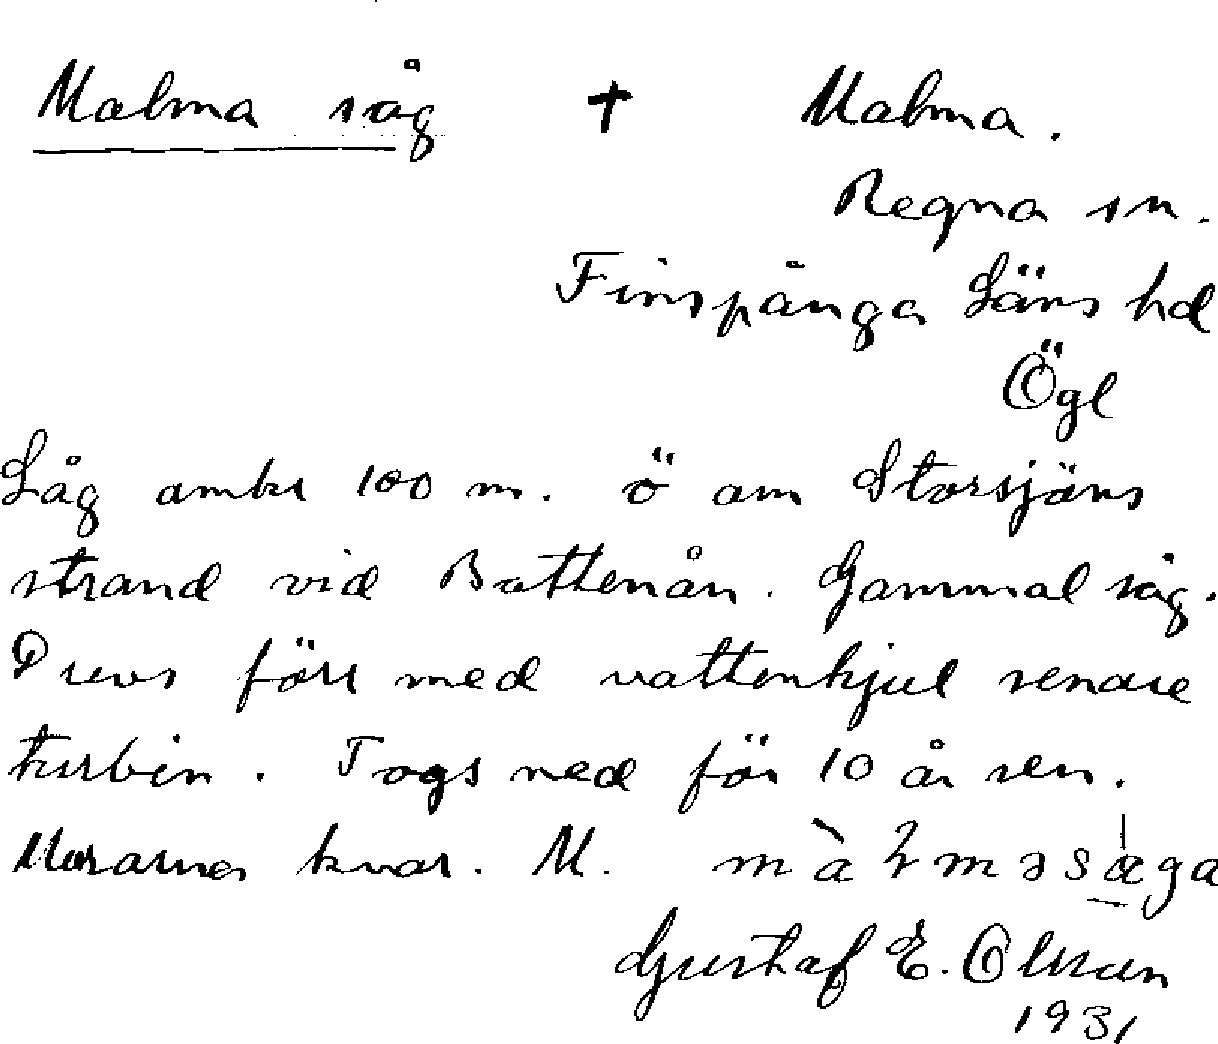 Malma såg † Malma.
Regna sn.
Finspånga Läns hd
Ögl
Låg omkr 100 m. ö om Storsjöns
strand vid Bottenån. Gammal såg.
Drevs förr med vattenhjul senare
turbin. Togs ned för 10 år sen.
Murarna kvar. M.
Gustaf E. Olsson
1931